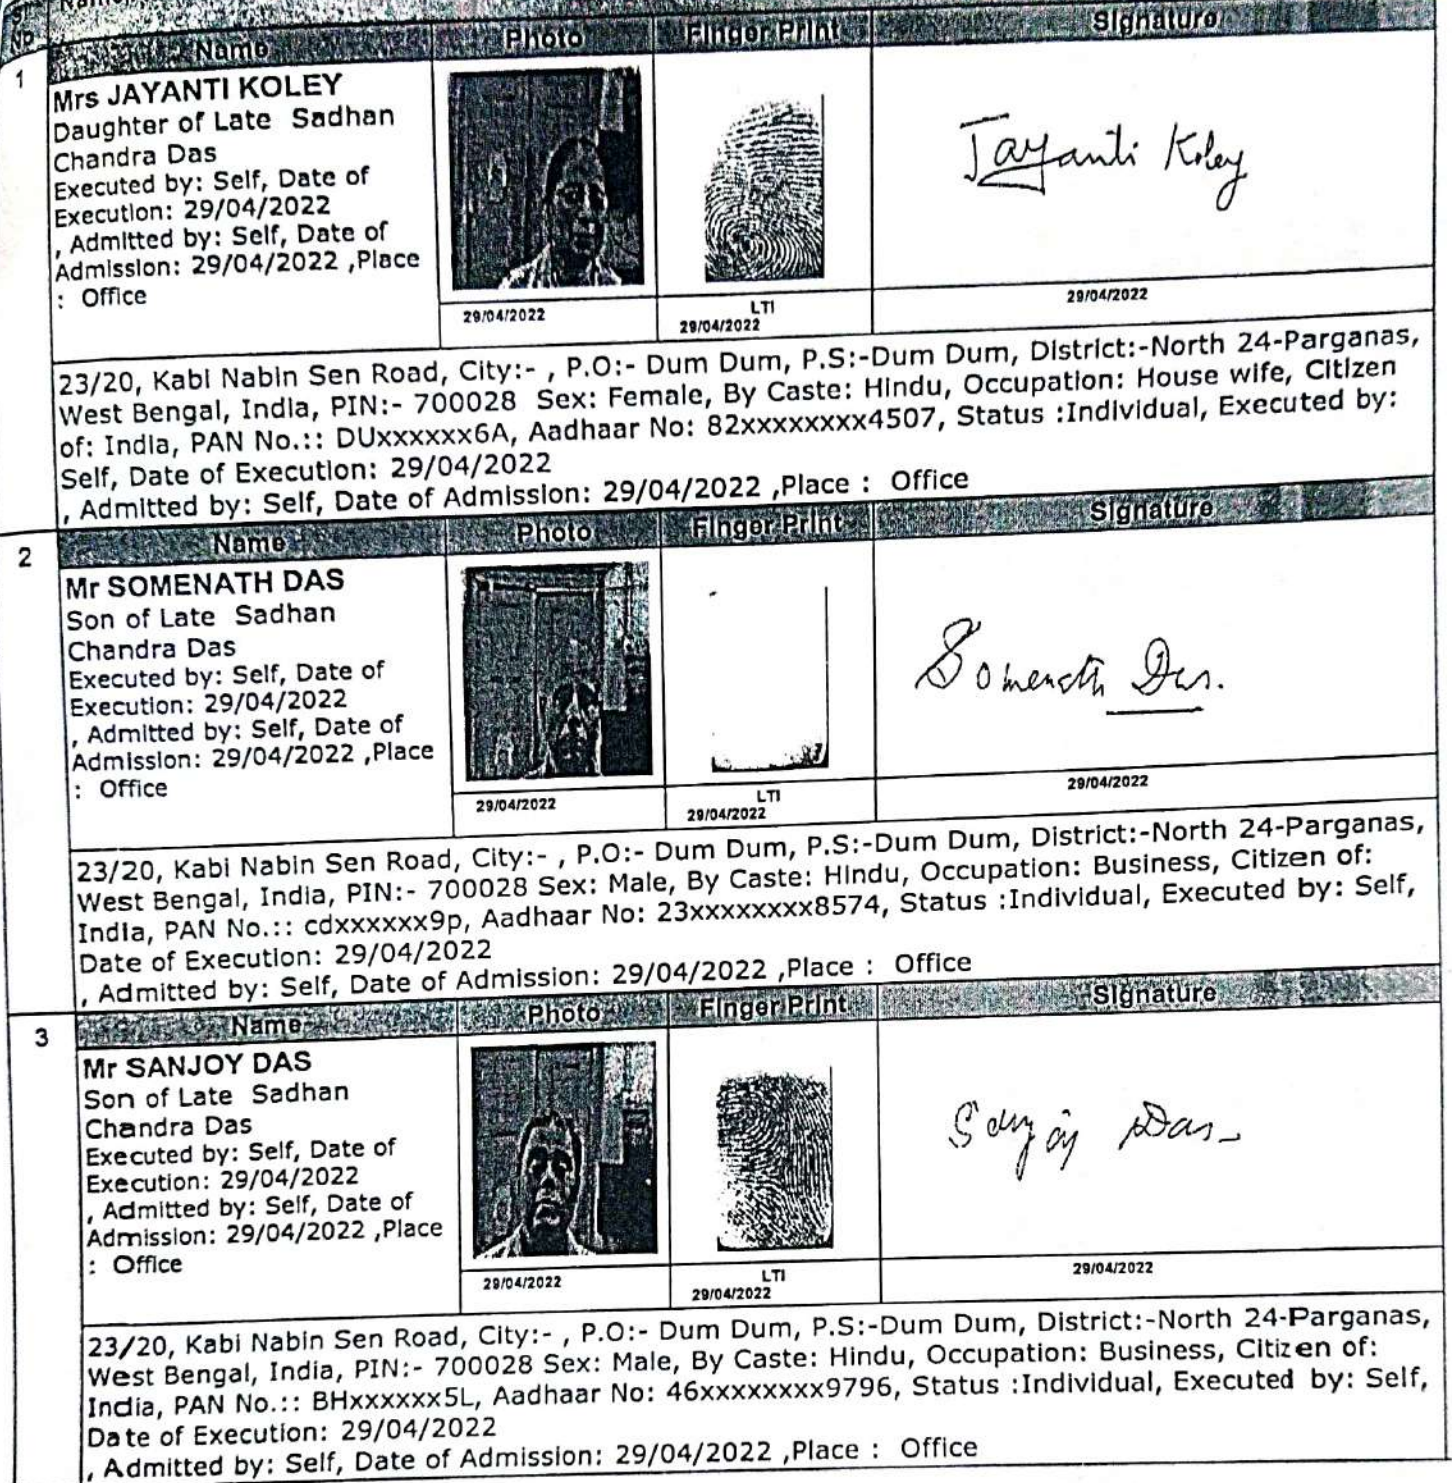 Sl
No
Name
Photo
Finger Print
Signature
1
Mrs JAYANTI KOLEY
Daughter of Late Sadhan
Chandra Das
Executed by: Self, Date of
Execution: 29/04/2022
, Admitted by: Self, Date of
Admission: 29/04/2022 ,Place
: Office
Jayanti Koley
29/04/2022
LTI
29/04/2022
29/04/2022
23/20, Kabi Nabin Sen Road, City:- , P.O:- Dum Dum, P.S:-Dum Dum, District:-North 24-Parganas,
West Bengal, India, PIN:- 700028 Sex: Female, By Caste: Hindu, Occupation: House wife, Citizen
of: India, PAN No.:: DUxxxxxx6A, Aadhaar No: 82xxxxxxxx4507, Status :Individual, Executed by:
Self, Date of Execution: 29/04/2022
, Admitted by: Self, Date of Admission: 29/04/2022 ,Place : Office
Name
Photo
Finger Print
Signature
2
Mr SOMENATH DAS
Son of Late Sadhan
Chandra Das
Executed by: Self, Date of
Execution: 29/04/2022
, Admitted by: Self, Date of
Admission: 29/04/2022 ,Place
: Office
Somenath Das.
29/04/2022
LTI
29/04/2022
29/04/2022
23/20, Kabi Nabin Sen Road, City:- , P.O:- Dum Dum, P.S:-Dum Dum, District:-North 24-Parganas,
West Bengal, India, PIN:- 700028 Sex: Male, By Caste: Hindu, Occupation: Business, Citizen of:
India, PAN No.:: cdxxxxxx9p, Aadhaar No: 23xxxxxxxx8574, Status :Individual, Executed by: Self,
Date of Execution: 29/04/2022
, Admitted by: Self, Date of Admission: 29/04/2022 ,Place : Office
Name
Photo
Finger Print
Signature
3
Mr SANJOY DAS
Son of Late Sadhan
Chandra Das
Executed by: Self, Date of
Execution: 29/04/2022
, Admitted by: Self, Date of
Admission: 29/04/2022 ,Place
: Office
Sanjoy Das
29/04/2022
LTI
29/04/2022
29/04/2022
23/20, Kabi Nabin Sen Road, City:- , P.O:- Dum Dum, P.S:-Dum Dum, District:-North 24-Parganas,
West Bengal, India, PIN:- 700028 Sex: Male, By Caste: Hindu, Occupation: Business, Citizen of:
India, PAN No.:: BHxxxxxx5L, Aadhaar No: 46xxxxxxxx9796, Status :Individual, Executed by: Self,
Date of Execution: 29/04/2022
, Admitted by: Self, Date of Admission: 29/04/2022 ,Place : Office